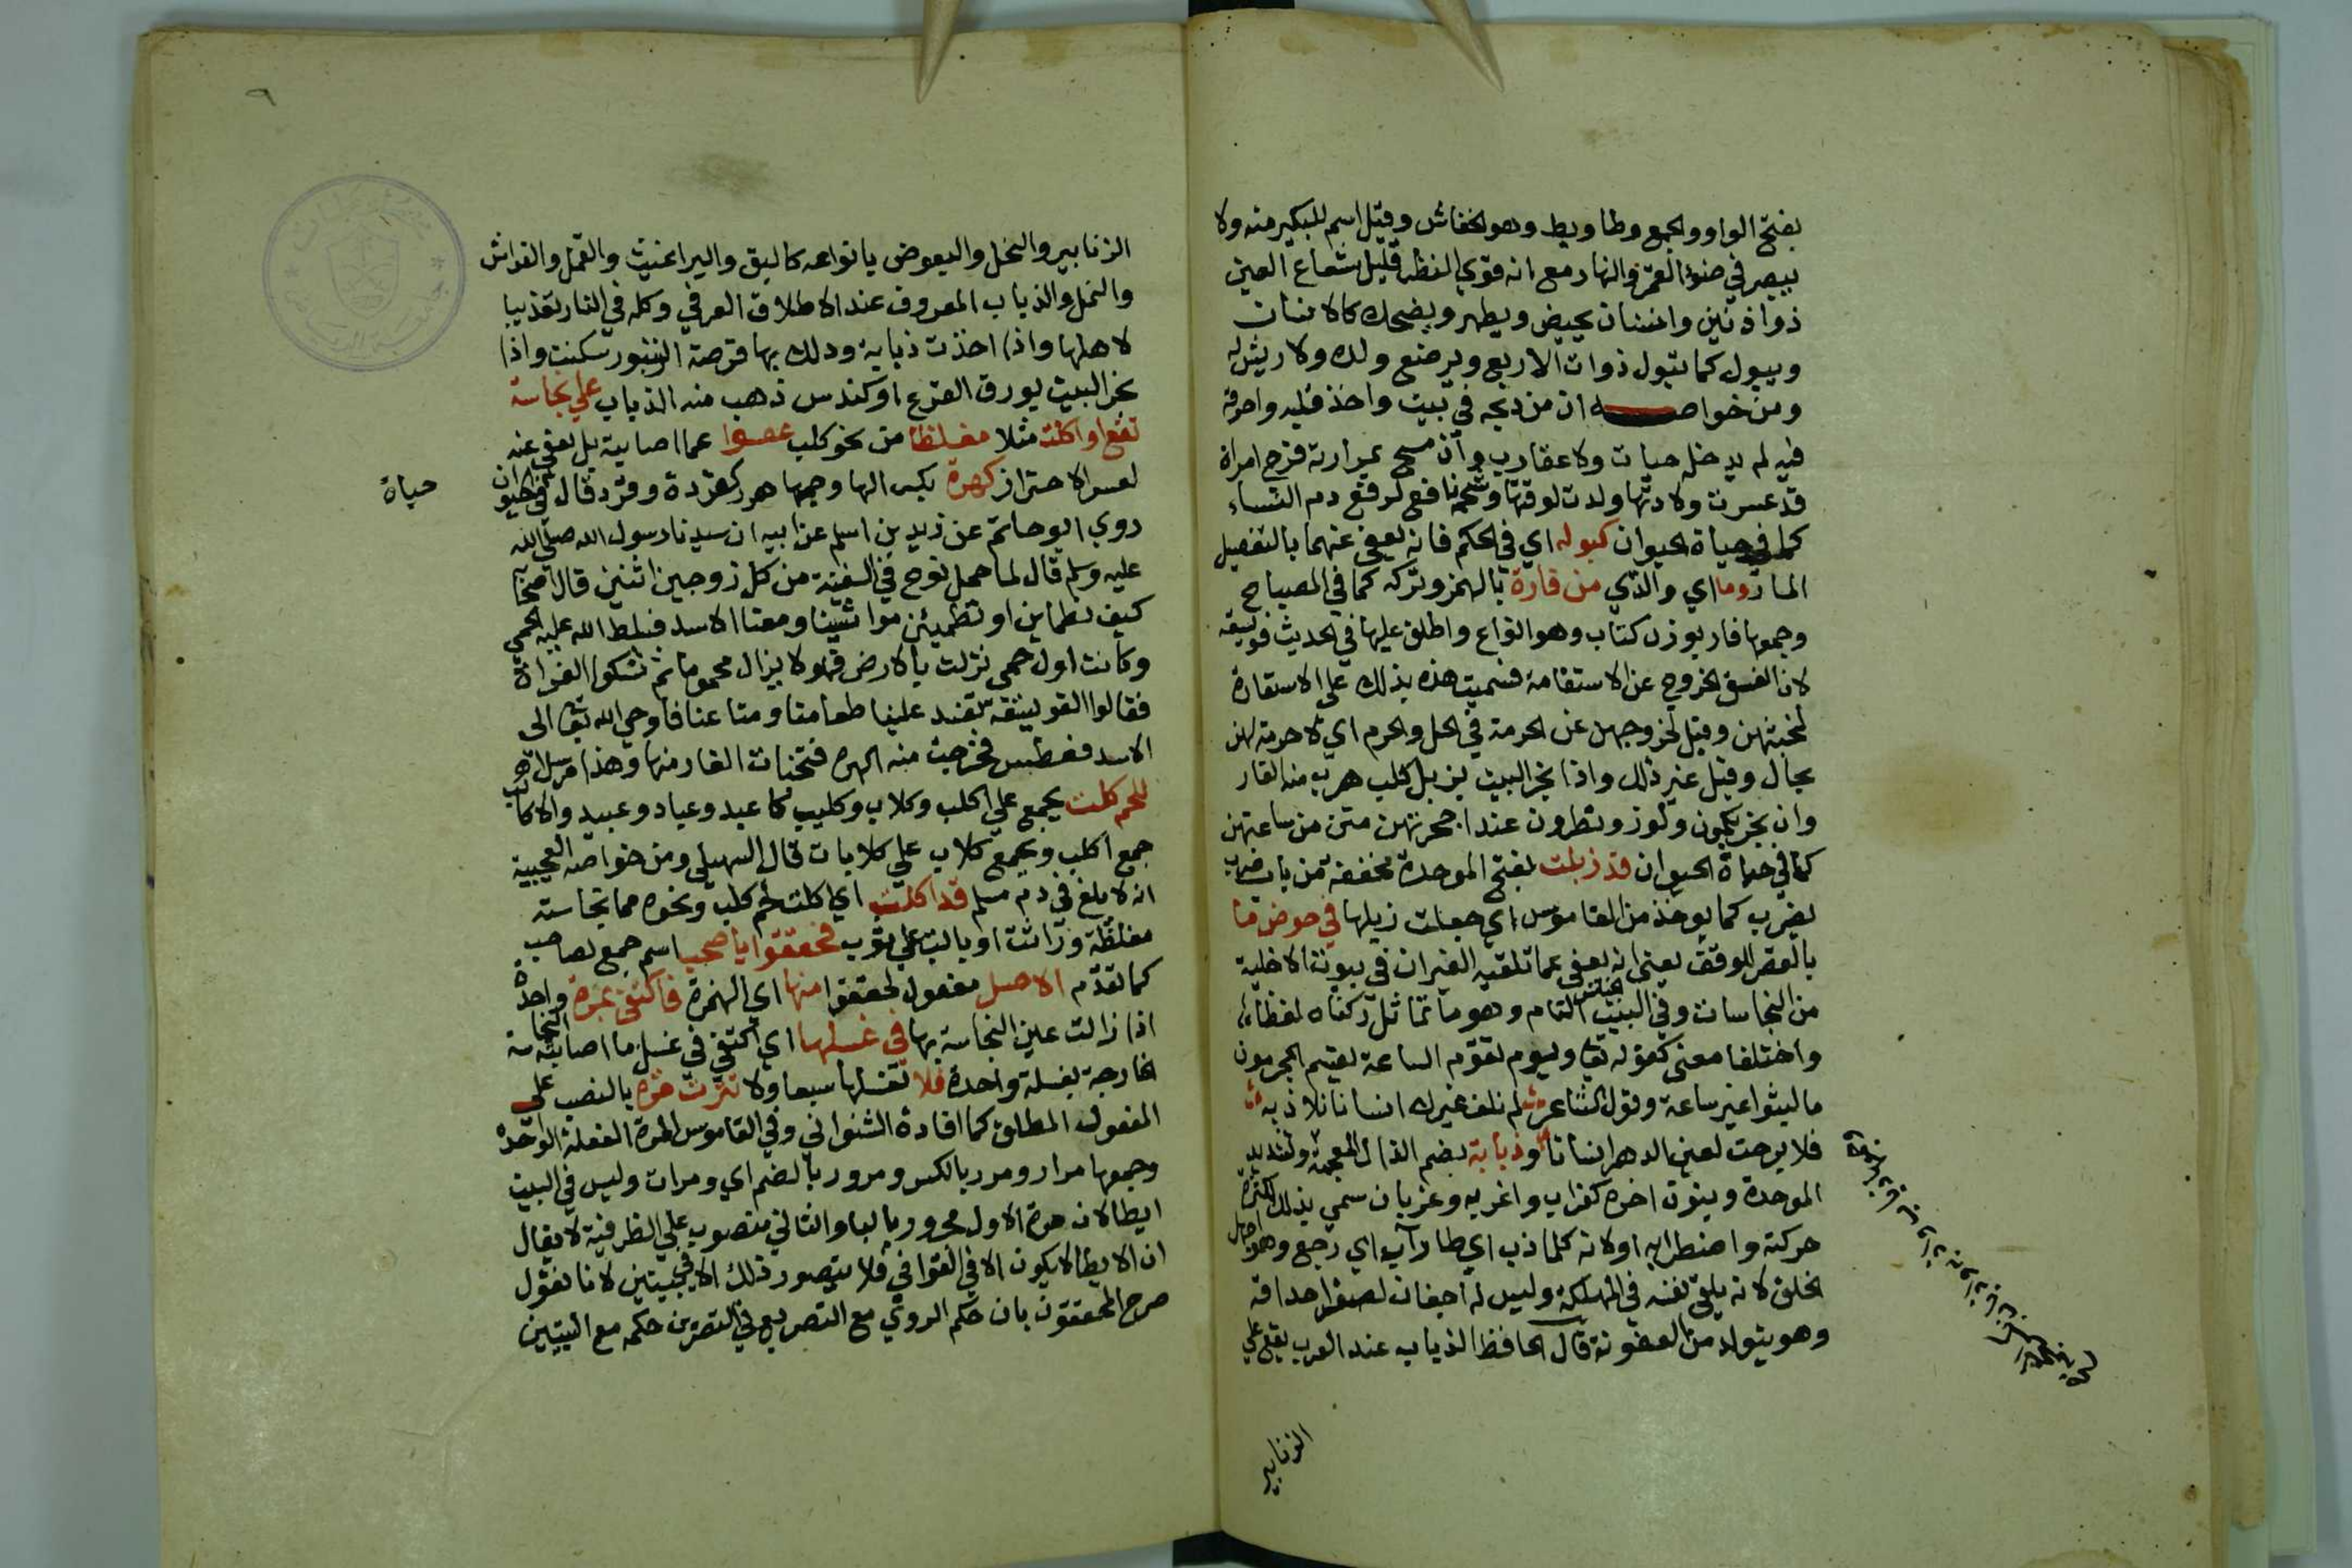 بفتح الواو والجمع وطاويط وهو الخفاش وقيل اسم للكبير منه ولا
يبصر في ضوء القمر والنهار مع انه قوي النظر قليل شعاع العين
ذو اذنين واسنان يحيض ويطهر ويضحك كالانسان
ويبول كما تبول ذوات الاربع ويرضع ولده ولا ريش له
ومن خواصه ان من ذبحه في بيت واخذ قلبه واحرقه
فيه لم يدخله حيات ولا عقارب وان مسح بمرارته فرج امراة
قد عسرت ولادتها ولدت لوقتها وشحمه نافع لرفع دم النساء
كما في حياة الحيوان كبوله اي في الحكم فانه يعفى عنهما بالتفصيل
المار وما اي والذي من فارة بالهمز وتركه كما في المصباح
وجمعها فار بوزن كتاب وهو انواع واطلق عليها في الحديث فويسقه
لان الفسق الخروج عن الاستقامة فسميت هذه بذلك على الاستعارة
لخبثهن وقيل لخروجهن عن الحرمة في الحل والحرم اي لا حرمة لهن
بحال وقيل غير ذلك واذا بخر البيت بزبل كلب هرب منه الفار
وان بخر بكمون ولوز ونطرون عند اجحرتهن متن من ساعتهن
كما في حياة الحيوان قد زبلت بفتح الموحدة مخففة من باب ضرب
يضرب كما يوخذ من القاموس اي جعلت زبلها في حوض ما
بالقصر للوقف يعني انه يعفى عما تلقيه الفيران في بيوت الاخلية
من النجاسات وفي البيت الجناس التام وهو ما تماثل ركناه لفظا
واختلفا معنى كقوله تعا ويوم تقوم الساعة يقسم المجرمون
ما لبثوا غير ساعة وقول الشاعر لم نلق غيرك انسانا نلاذ به
فلا برحت لعين الدهر انسانا وذبابة بضم الذال المعجمة وتشديد
الموحدة وبنون اخره كغراب واغربه وغربان سمي بذلك لكثرة
حركته واضطرابه اولانه كلما ذب اي طار آب اي رجع وهو اجهل
الخلق لانه يلقي نفسه في المهلكة وليس له اجفان لصغر احداقه
وهو يتولد من العفونة قال الحافظ الذباب عند العرب يقع على
الزنابير
الزنابير والنحل والبعوض بانواعه كالبق والبراغيث والقمل والفراش
والنمل والذباب المعروف عند الاطلاق العرفي وكله في النار تعذيبا
لاهلها واذا اخذت ذبابة ودلك بها قرصة الزنبور سكنت واذا
بخر البيت بورق القرع او كندس ذهب منه الذباب على نجاسة
تقع او اكلت مثلا مغلظا من نحو كلب عفوا عما اصابته بل يعفى عنه
لعسر الاحتراز كهرة بكسر الها وجمعها هرر كقردة وقرد قال في حيوان
حياة
روي ابو حاتم عن زيد بن اسلم عن ابيه ان سيدنا رسول الله صلى الله
عليه وسلم قال لما حمل نوح في السفينة من كل زوجين اثنين قال اصحابه
كيف نطماين او تطمين مواشينا ومعنا الاسد فسلط الله عليه الحمى
وكانت اول حمى نزلت بالارض فهو لا يزال محموما ثم شكوا الفراة
فقالوا الفويسقه تفسد علينا طعامنا ومتاعنا فاوحى الله تعا الى
الاسد فعطس فخرجت منه الهره فتخبات الفار منها وهذا مرسل
للحم كلب يجمع على اكلب وكلاب وكليب كاعبد وعباد وعبيد والاكالب
جمع اكلب ويجمع كلاب على كلابات قال السهيلي ومن خواصه العجيبة
انه لا يلغ في دم مسلم قد اكلت اي اكلت لحم كلب ونحوه مما نجاسته
مغلظة وراثت او بالت على ثوب فحققوا يا صحب اسم جمع لصاحب
كما تقدم الاصل مفعول لحققوا منها اي الهرة فاكتفي بمرة واحدة
اذا زالت عين النجاسة بها في غسلها اي اكتفي في غسل ما اصابته النجاسة
الخارجة بغسلة واحدة فلا تغسلها سبعا ولا تترث مره بالنصب على
المفعول المطلق كما افادة الشنواني وفي القاموس المرة الفعلة الواحدة
وجمعها مرار ومرر بالكسر ومرور بالضم اي ومرات وليس في البيت
ايطا لان مرة الاول مجرور بالبا والثاني منصوب على الظرفية لا يقال
ان الايطا لا يكون الا في القوافي فلا يتصور ذلك الا في بيتين لانا نقول
صرح المحققون بان حكم الروي مع التصريع في القرين حكمه مع البيتين